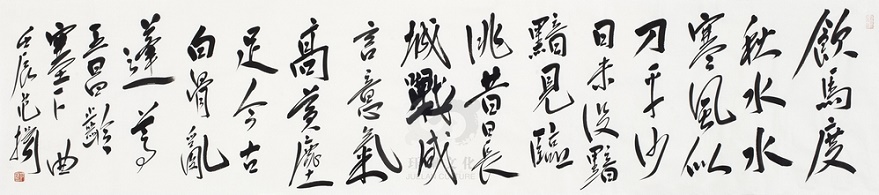 飲馬度
秋水水
寒風似
刀平沙
日未沒黯
黯見臨
洮昔日長
城戰咸
言意氣
高黃塵
足今古
白骨亂
蓬蒿
王昌齡
塞下曲
壬辰